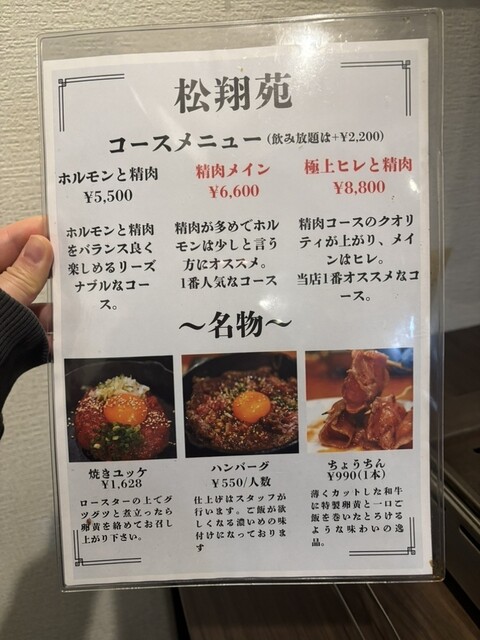 松翔苑
コースメニュー(飲み放題は+¥2,200)
ホルモンと精肉
¥5,500
精肉メイン
¥6,600
極上ヒレと精肉
¥8,800
ホルモンと精肉
をバランス良く
楽しめるリーズ
ナブルなコー
ス。
精肉が多めでホル
モンは少しと言う
方にオススメ。
1番人気なコース
精肉コースのクオリ
ティが上がり、メイ
ンはヒレ。
当店1番オススメなコ
ース。
～名物～
焼きユッケ
¥1,628
ロースターの上でグ
ツグツと煮立ったら
卵黄を絡めてお召し
上がり下さい。
ハンバーグ
¥550/人数
仕上げはスタッフが
行います。ご飯が欲
しくなる濃いめの味
付けになっておりま
す
ちょうちん
¥990(1本)
薄くカットした和牛
に特製卵黄と一口ご
飯を巻いたとろける
ような味わいの逸
品。